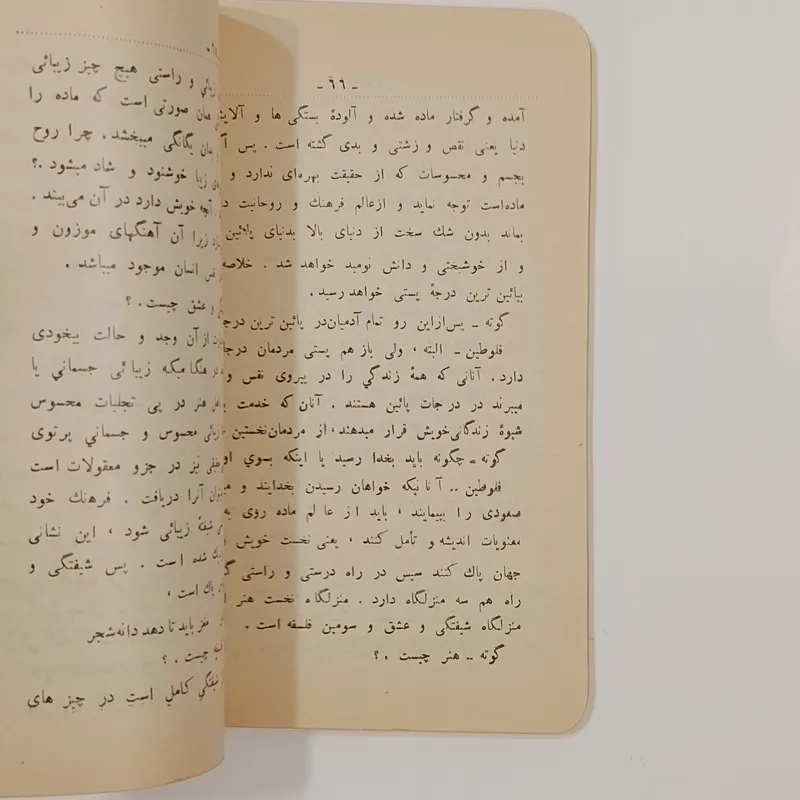 - ٦٦ -
آمده و گرفتار ماده شده و آلودهٔ بستگی ها و آلایش
دنیا یعنی نقص و زشتی و بدی گشته است . پس
بجسم و محسوسات که از حقیقت بهره‌ای ندارد و
ماده‌است توجه نماید و ازعالم فرهنك و روحانیت
بماند بدون شك سخت از دنیای بالا بدنیای پائین
و از خوشبختی و دانش نومید خواهد شد . خلاصه
بپائین ترین درجهٔ پستی خواهد رسید .
گوته ـ پس‌ازاین رو تمام آدمیان‌در پائین ترین
فلوطین ـ البته ، ولی باز هم پستی مردمان
دارد . آنانی که همهٔ زندگي را در پیروی نفس و
میبرند در درجات پائین هستند . آنان که خدمت
شیوهٔ زندگانی‌خویش قرار میدهند، از مردمان‌نخستین
گوته ـ چگونه باید بخدا رسید یا اینکه بسوي
فلوطین ـ آنانیکه خواهان رسیدن بخدایند و
صعودی را بپیمایند ، باید از عالم ماده روی
معنویات اندیشه و تأمل کنند ، یعنی نخست خویش
جهان پاك کنند سپس در راه درستی و راستی
راه هم سه منزلگاه دارد . منزلگاه نخست هنر
منزلگاه شیفتگی و عشق و سومین فلسفه است .
گوته ـ هنر چیست . ؟
و راستی هیچ چیز زیبائی
صورتی است که ماده را
یگانگی میبخشد . چرا روح
زیبا خوشنود و شاد میشود .؟
آنچه خویش دارد در آن می‌بیند .
زیرا آن آهنگهای موزون و
نفس انسان موجود میباشد .
و عشق چیست . ؟
از آن وجد و حالت بیخودی
هنگامیکه زیبائی جسمانی یا
هنر در پی تجلیات محسوس
محسوس و جسمانی پرتوی
نیز در جزو معقولات است
آنرا دریافت . فرهنك خود
شیفتهٔ زیبائی شود ، این نشانی
شده است . پس شیفتگی و
پاك است ،
مغز باید تا دهد دانه‌شجر
چیست . ؟
شیفتگي کامل است در چیز های